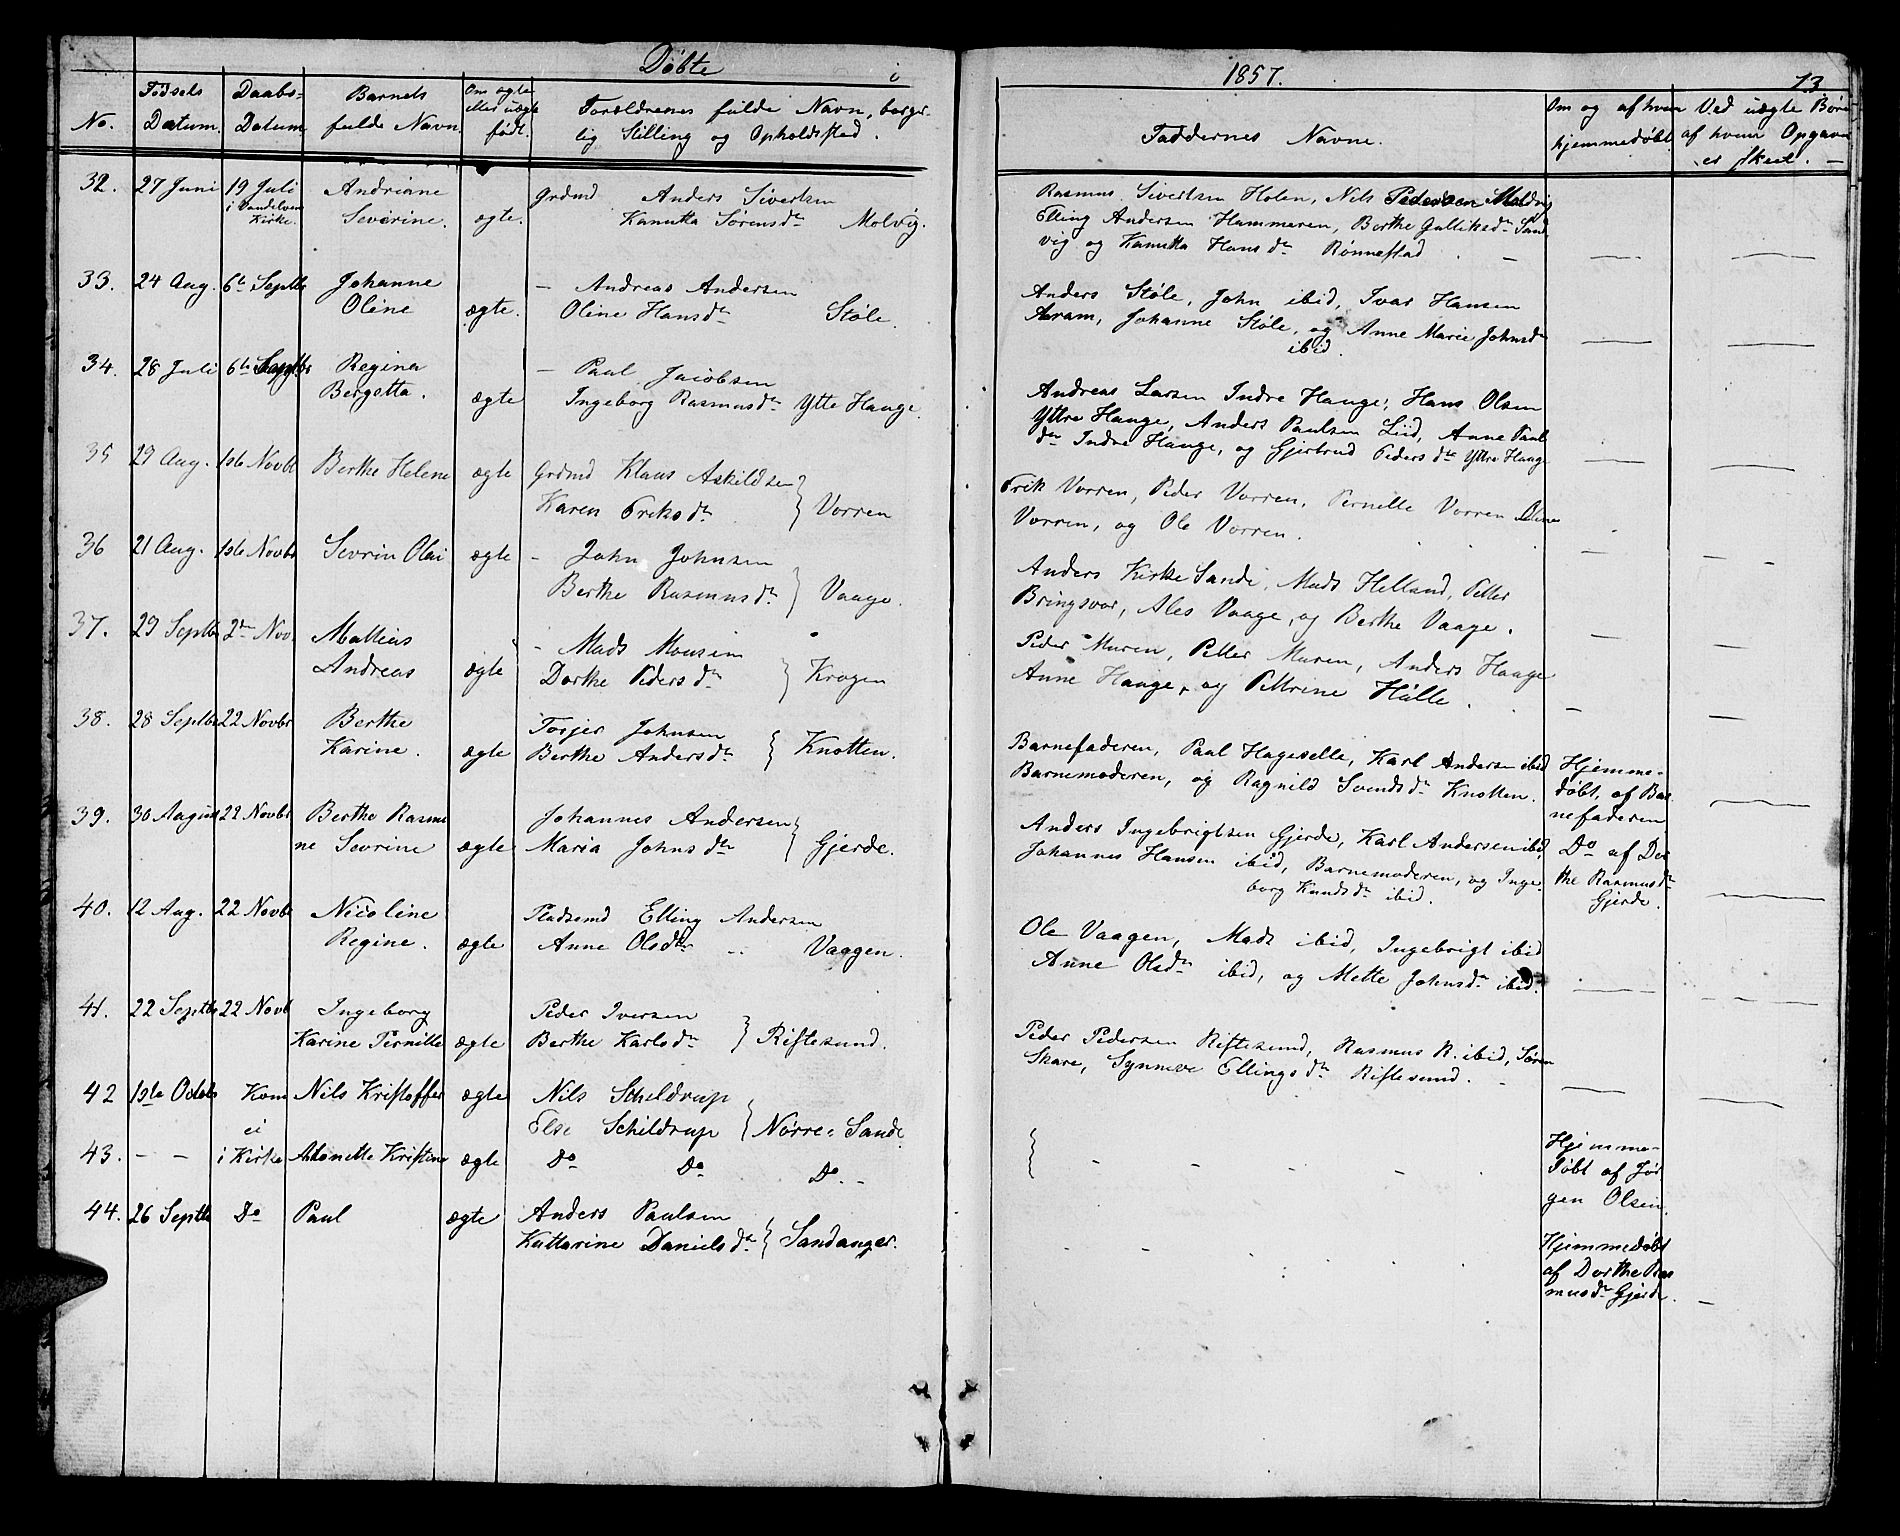 Døbte i
1857.
13
No.
Fødsels Datum
Daabs- Datum
Barnets fulde Navn
Om ægte eller uægte født.
Forældrenes fulde Navn, borger-
lig Stilling og Opholdssted.
Faddernes Navne.
Om og af hvem hjemmedøbt
Ved uægte Børn
af hvem Opgaven
er skeet. –
32. 27 Juni 19 Juli Andriane Grdmd Anders Sivertsen
i Vandelven Kirke. Severine. ægte. Kanutta Sørensdtr Molvig.
Rasmus Sivertsen Holen, Nils Pedersen Moldvig
Elling Andersen Hammeren, Berthe Gulliksdtr Sand-
vig og Kanutta Hansdtr Rønnestad
33. 24 Aug. 6te Septbr Johanne – Andreas Andersen
Oline ægte. Oline Hansdtr Støle.
Anders Støle, John ibid, Ivar Hansen
Aram, Johanne Støle, og Anne Marie Johnsdtr
ibid.
34. 28 Juli 6te Septbr Regina – Paul Jacobsen
Bergetta. ægte Ingeborg Rasmusdtr Ytte Hauge.
Andreas Larsen Indre Hauge, Hans Olsen
Yttre Hauge, Anders Paulsen Liid, Anne Paul
dtr Indre Hauge, og Gjertrud Pedersdtr Yttre Hauge
35 29 Aug. 1ste Novbr Berthe Helene ægte Grdmd Klaus Askildsen
Karen Eriksdtr } Vorren
Erik Vorren, Peder Vorren, Pernille Vorren Oline
Vorren, og Ole Vorren.
36 21 Aug. 1ste Novbr Sevrin Olai ægte – John Johnsen
Berthe Rasmusdtr } Vaage.
Anders Kirke Sande, Mads Helland, Petter
Bringsvor, Ales Vaage, og Berthe Vaage.
37. 29 Septbr 2den Nov. Mattias – Mads Monsen
Andreas ægte Dorthe Pedersdtr } Krogen
Peder Muren, Petter Muren, Anders Hauge
Anne Hauge, og Pettrine Hülle.
38. 28 Septbr 22 Novbr Berthe Torjer Johnsen
Karine. ægte Berthe Andersdtr } Knotten.
Barnefaderen, Paul Hageselle, Karl Andersen ibid
Barnemoderen, og Ragnild Svendsdtr Knotten.
Hjemme-
døbt, af Bar
nefaderen
39. 30 August 22 Novbr Berthe Rasmi Johannes Andersen
ne Sevrine ægte Maria Johnsdtr } Gjerde.
Anders Ingebrigtsen Gjerde, Karl Andersen ibid,
Johannes Hansen ibid, Barnemoderen, og Inge-
borg Knudsdtr ibid.
Do af Dor
the Rasmusdtr
Gjerde.
40. 12 Aug. 22 Novbr Nicoline Pladsemd Elling Andersen
Regine. ægte Anne Olsdtr Vaagen.
Ole Vaagen, Mads ibid, Ingebrigt ibid
Anne Olsdtr ibid, og Mette Johnsdtr ibid.
41. 22 Septbr 22 Novb Ingeborg Peder Iversen
Karine Pernille ægte Berthe Karlsdtr } Riftesund.
Peder Pedersen Riftesund, Rasmus R. ibid, Søren
Skare, Synneve Ellingsdtr Riftesund.
42 1ste Octob Kom Nils Kristoffer ægte Nils Scheldrup
ei Else Schildrup } Nørre-Sande
43. – – i Kirke Antonette Kristine ægte Do Do Do –
Hjemme-
døbt af Jør
gen Olsen.
44. 26 Septbr Do Paul ægte Anders Paulsen
Kattarine Danielsdtr } Sandanger.
Hjemmedøbt
af Dorthe Ras
musdtr Gjerde.